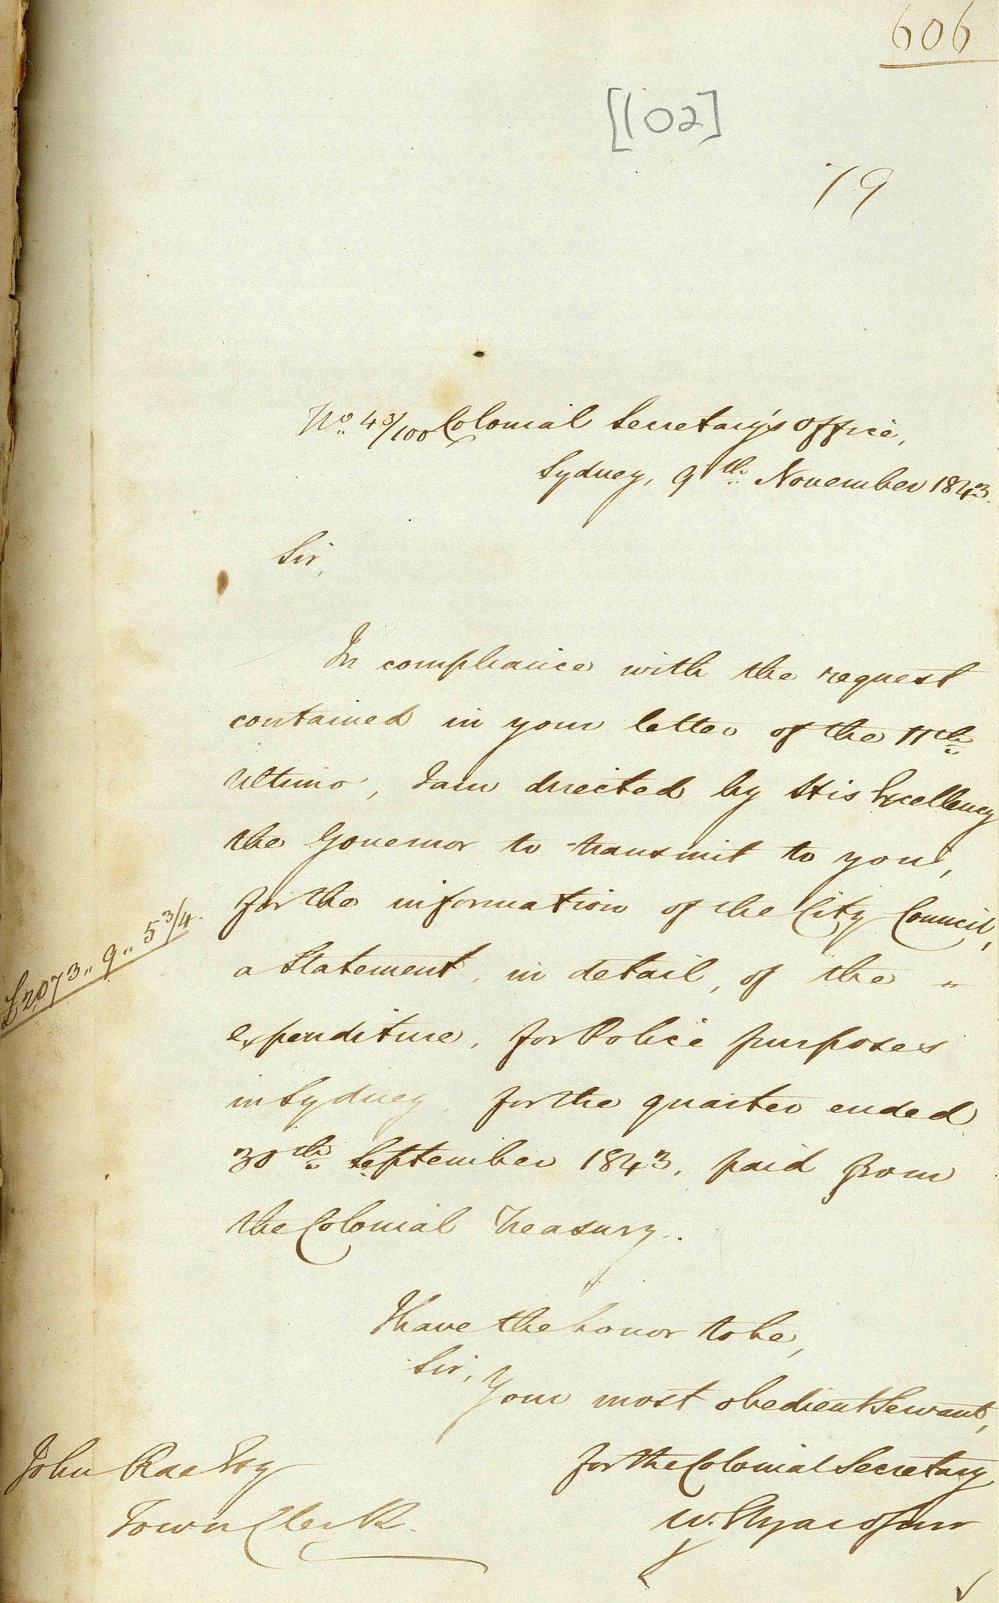 606
[102]
79
No. 43/100 Colonial Secretary's Office,
Sydney, 9th November 1843.
Sir,
In compliance with the request
contained in your letter of the 11th
Ultimo, I am directed by His Excellency
the Governor to transmit to you,
for the information of the City Council,
£2073 " 9 " 5 3/4
a Statement, in detail, of the "
expenditure, for Police purposes
in Sydney for the quarter ended
30th September 1843, paid from
the Colonial Treasury.
I have the honor to be,
Sir,
Your most obedient Servant,
for the Colonial Secretary
John Rae Esq
Town Clerk.
W.